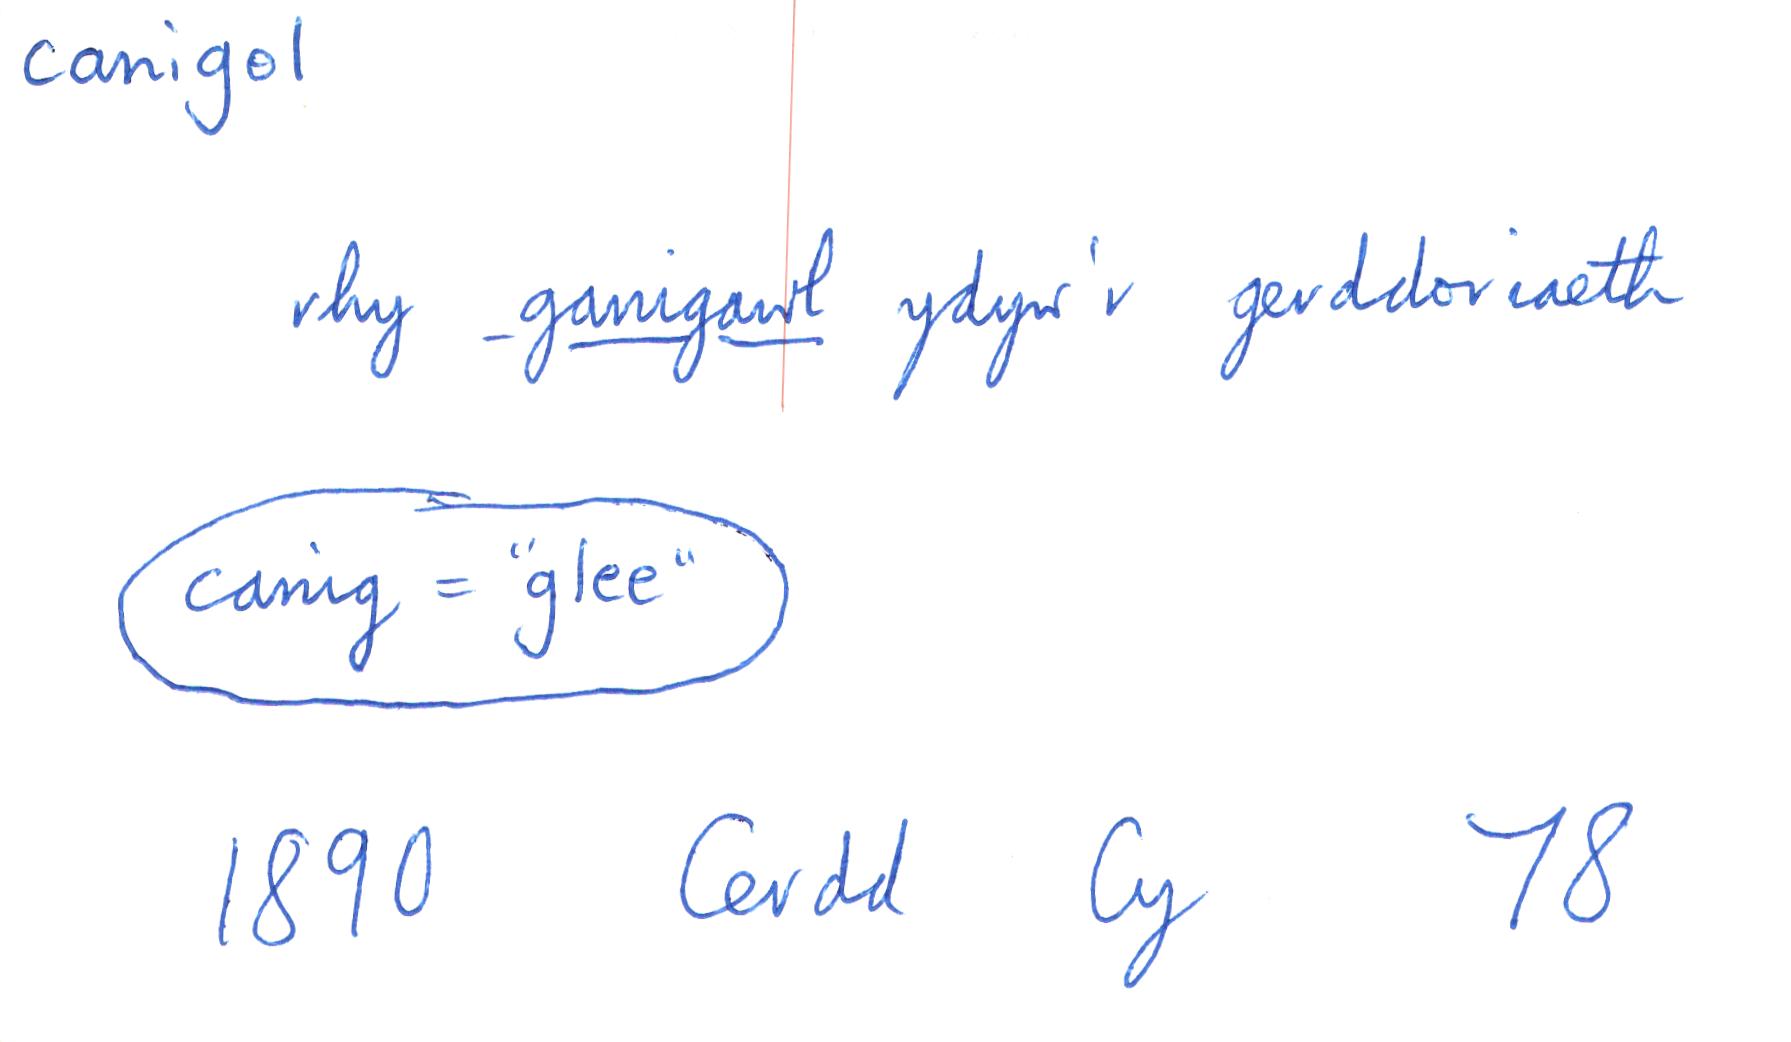 canigol
rhy ganigawl ydyw'r gerddoriaeth
canig = "glee"
1890 Cerdd Cy 78